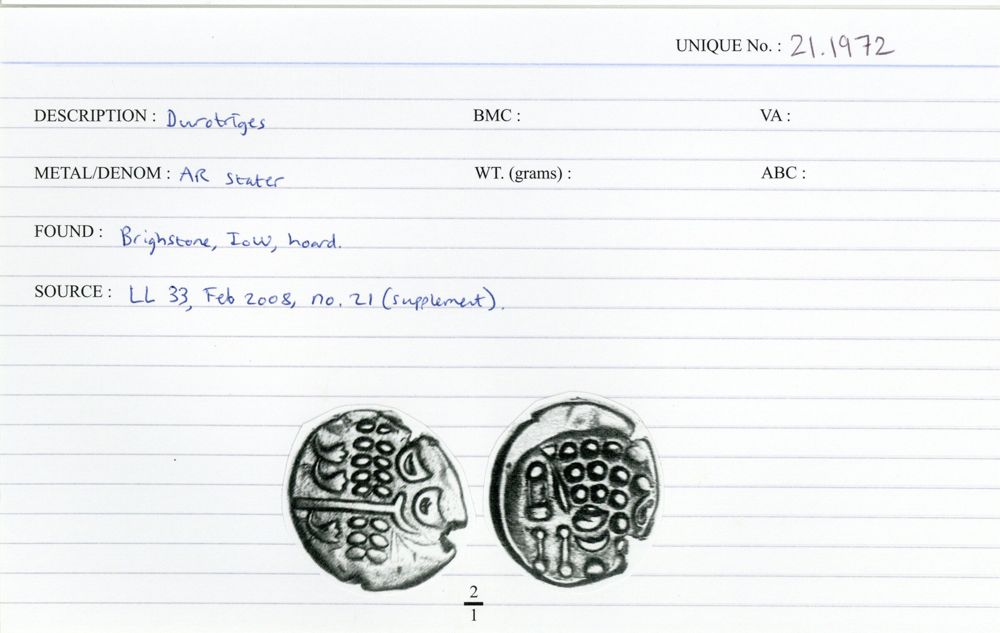 UNIQUE No. : 21.1972
DESCRIPTION : Durotriges BMC : VA :
METAL/DENOM : AR stater WT. (grams) : ABC :
FOUND : Brighstone, IoW, hoard.
SOURCE : LL 33, Feb 2008, no. 21 (supplement).
2
1